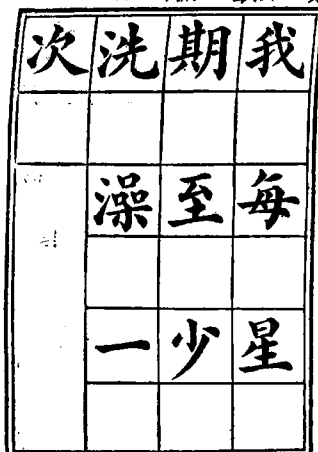 我每星
期至少
洗澡一
次